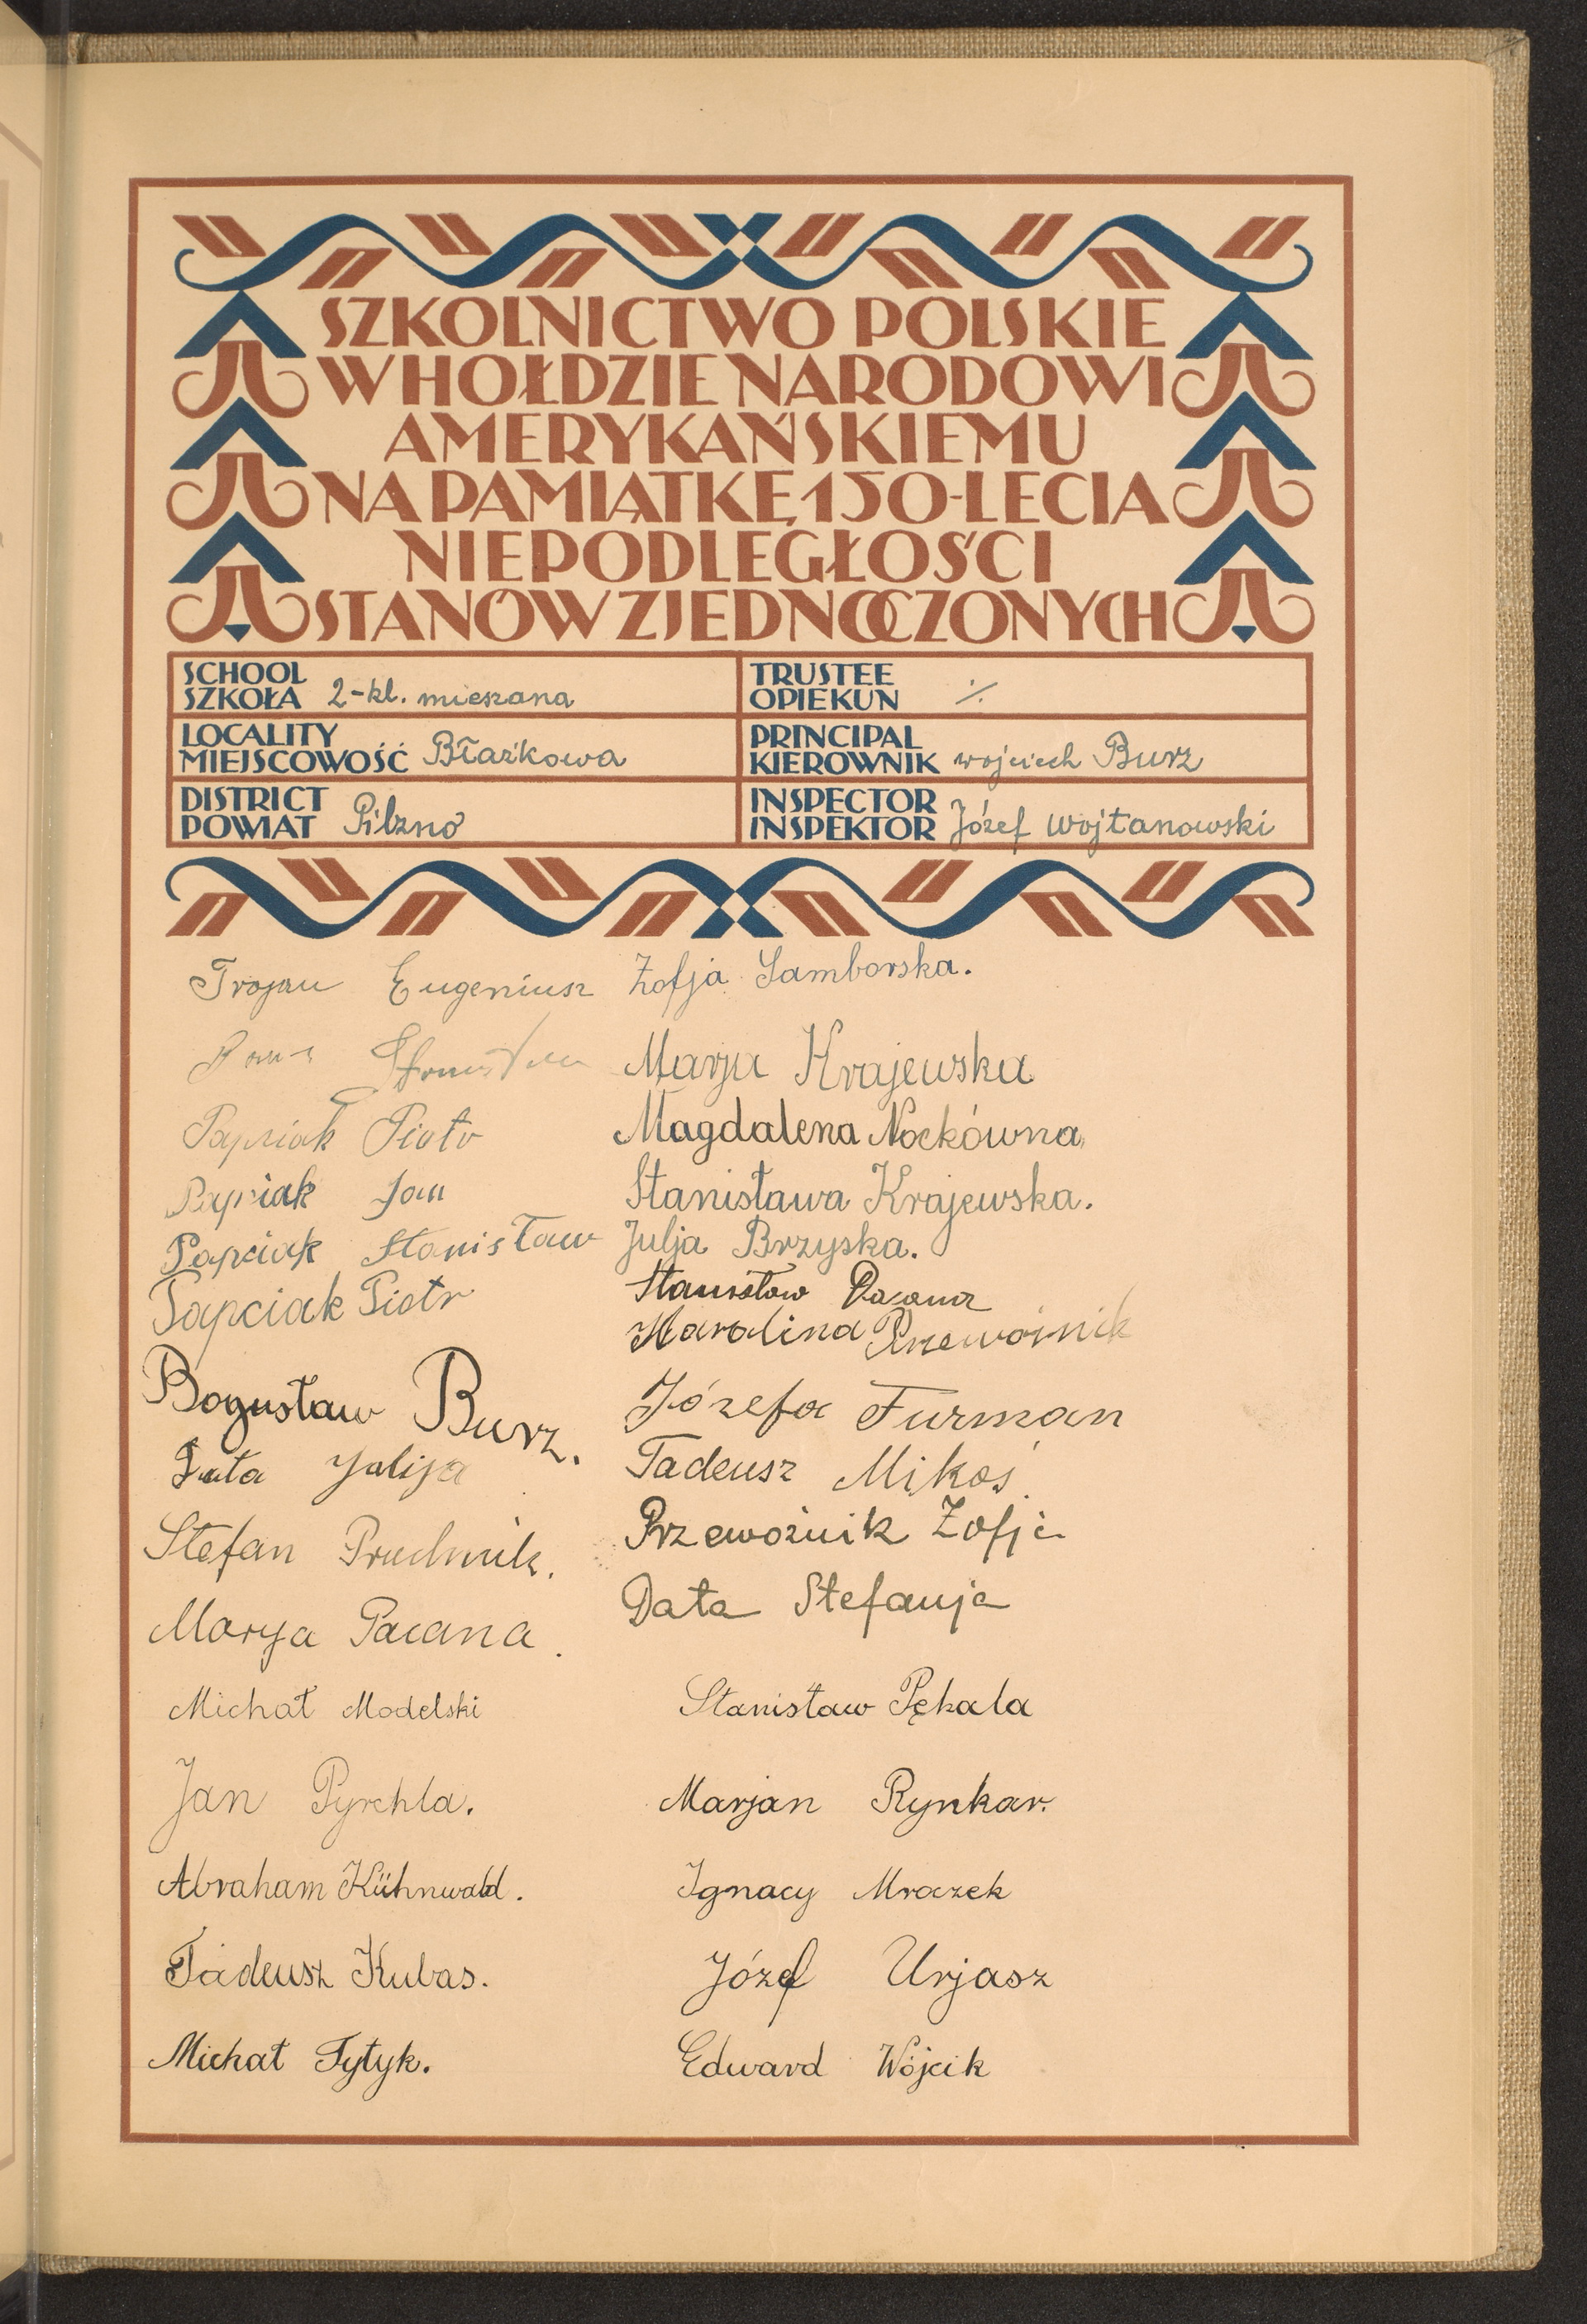 SZKOLNICTWO POLSKIE
W HOŁDZIE NARODOWI
AMERYKAŃSKIEMU
NA PAMIĄTKĘ 150-LECIA
NIEPODLEGŁOŚCI
STANÓW ZJEDNOCZONYCH
SCHOOL
SZKOŁA 2-kl. mieszana
TRUSTEE
OPIEKUN ·/·
LOCALITY
MIEJSCOWOŚĆ Błażkowa
PRINCIPAL
KIEROWNIK wojciech Burz
DISTRICT
POWIAT Pilzno
INSPECTOR
INSPEKTOR Józef Wojtanowski
Trojan Eugeniusz
Papciak Piotr
Papciak Jan
Papciak Stanisław
Papciak Piotr
Bogusław Burz.
Data Julija
Stefan Prudmik.
Marya Pacana.
Michał Modelski
Jan Pyrchla.
Abraham Kühnwald.
Tadeusz Kubas.
Michał Tytyk.
Zofja Samborska.
Marja Krajewska
Magdalena Nockówna
Stanisława Krajewska.
Julja Brzyska.
Stanisław Pacana
Karolina Przewoźnik
Józefa Furman
Tadeusz Mikoś.
Przewoźnik Zofja
Data Stefanja
Stanisław Pękala
Marjan Rynkar.
Ignacy Mroczek
Józef Urjasz
Edward Wójcik